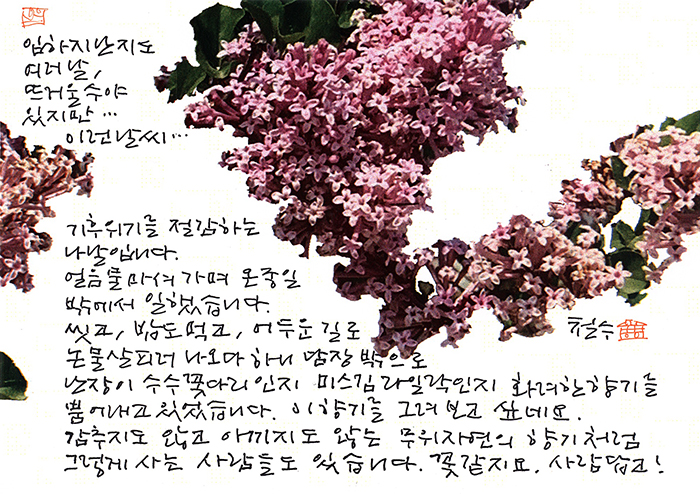 입하지난지도
여러날,
뜨거울수야
있지만...
이런날씨...
기후위기를 절감하는
나날입니다.
얼음물마셔가며 온종일
밖에서 일했습니다.
씻고, 밥도먹고, 어두운길로
논물살피러 나오다 하니 담장밖으로
난장이 수수꽃다리인지 미스김라일락인지 화려한향기를
뿜어내고있었습니다. 이향기를 그려보고 싶네요.
감추지도 않고 아끼지도 않는 무위자연의 향기처럼
그렇게 사는 사람들도 있습니다. 꽃같지요. 사람답고!
철수